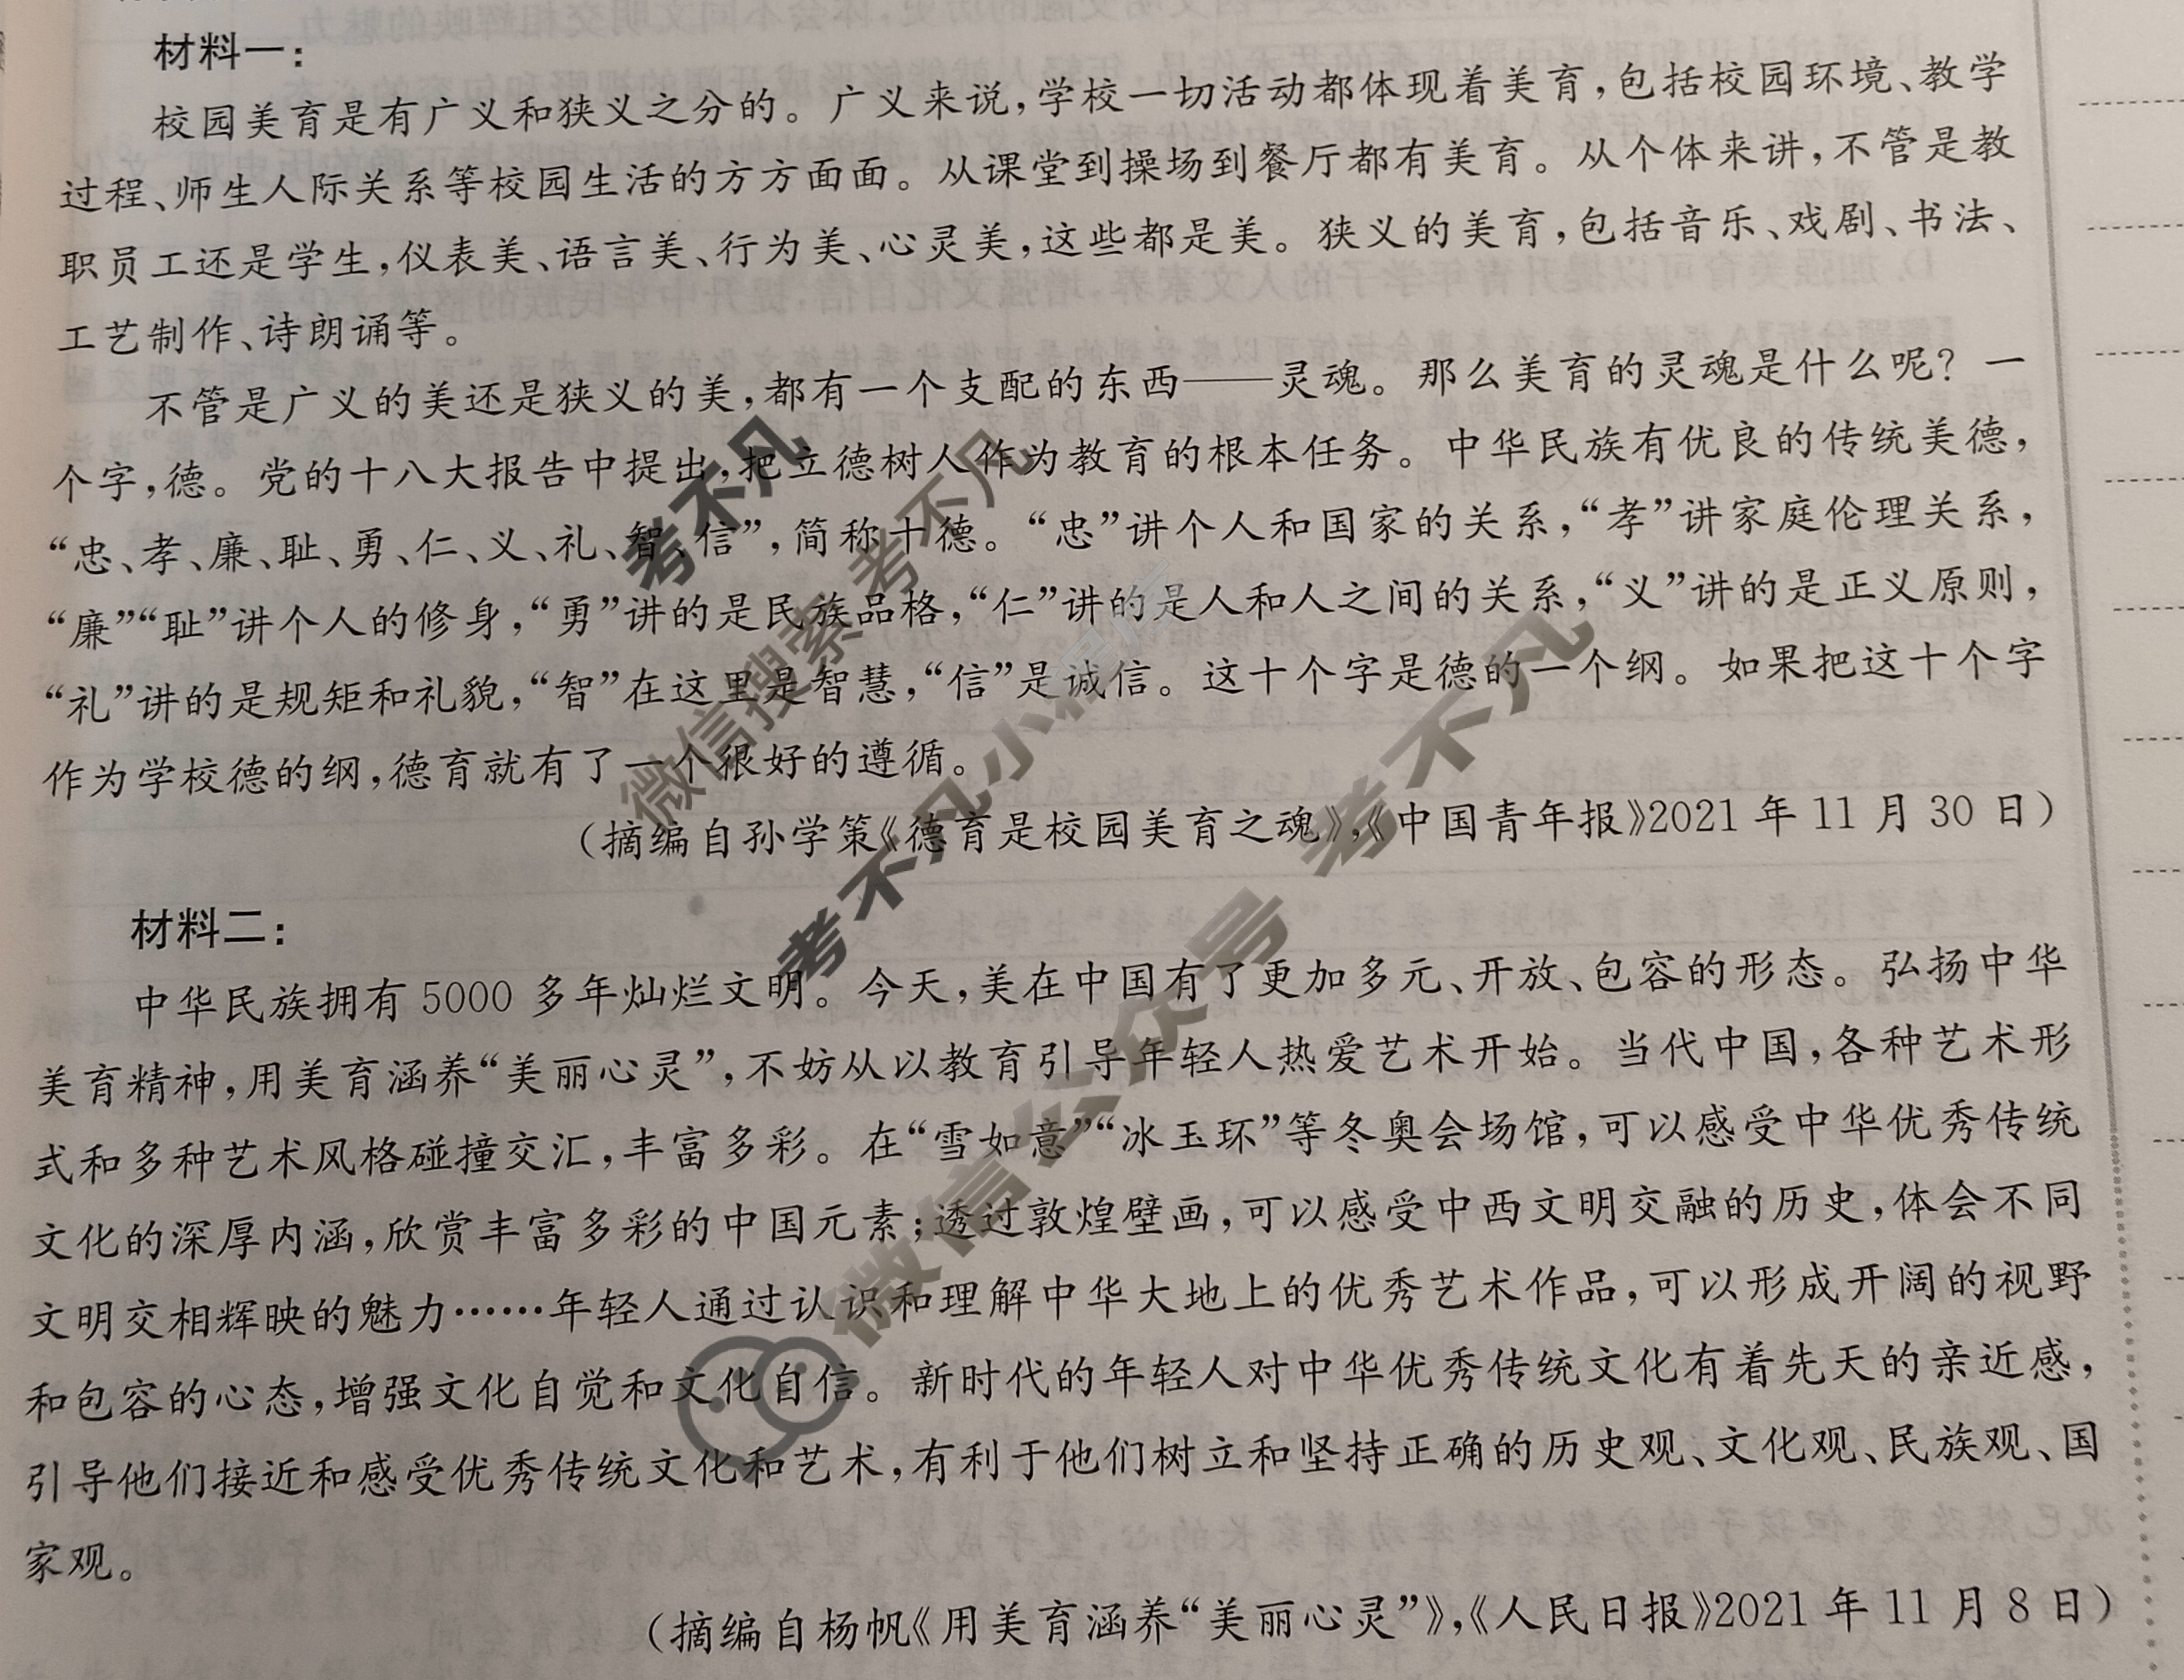 材料一：
校园美育是有广义和狭义之分的。广义来说，学校一切活动都体现着美育，包括校园环境、教学
过程、师生人际关系等校园生活的方方面面。从课堂到操场到餐厅都有美育。从个体来讲，不管是教
职员工还是学生，仪表美、语言美、行为美、心灵美，这些都是美。狭义的美育，包括音乐、戏剧、书法、
工艺制作、诗朗诵等。
不管是广义的美还是狭义的美，都有一个支配的东西——灵魂。那么美育的灵魂是什么呢？一
个字，德。党的十八大报告中提出，把立德树人作为教育的根本任务。中华民族有优良的传统美德，
“忠、孝、廉、耻、勇、仁、义、礼、智、信”，简称十德。“忠”讲个人和国家的关系，“孝”讲家庭伦理关系，
“廉”“耻”讲个人的修身，“勇”讲的是民族品格，“仁”讲的是人和人之间的关系，“义”讲的是正义原则，
“礼”讲的是规矩和礼貌，“智”在这里是智慧，“信”是诚信。这十个字是德的一个纲。如果把这十个字
作为学校德的纲，德育就有了一个很好的遵循。
（摘编自孙学策《德育是校园美育之魂》，《中国青年报》2021年11月30日）
材料二：
中华民族拥有5000多年灿烂文明。今天，美在中国有了更加多元、开放、包容的形态。弘扬中华
美育精神，用美育涵养“美丽心灵”，不妨从以教育引导年轻人热爱艺术开始。当代中国，各种艺术形
式和多种艺术风格碰撞交汇，丰富多彩。在“雪如意”“冰玉环”等冬奥会场馆，可以感受中华优秀传统
文化的深厚内涵，欣赏丰富多彩的中国元素；透过敦煌壁画，可以感受中西文明交融的历史，体会不同
文明交相辉映的魅力……年轻人通过认识和理解中华大地上的优秀艺术作品，可以形成开阔的视野
和包容的心态，增强文化自觉和文化自信。新时代的年轻人对中华优秀传统文化有着先天的亲近感，
引导他们接近和感受优秀传统文化和艺术，有利于他们树立和坚持正确的历史观、文化观、民族观、国
家观。
（摘编自杨帆《用美育涵养“美丽心灵”》，《人民日报》2021年11月8日）
考不凡
微信搜索 考不凡
考不凡小程序
微信公众号 考不凡